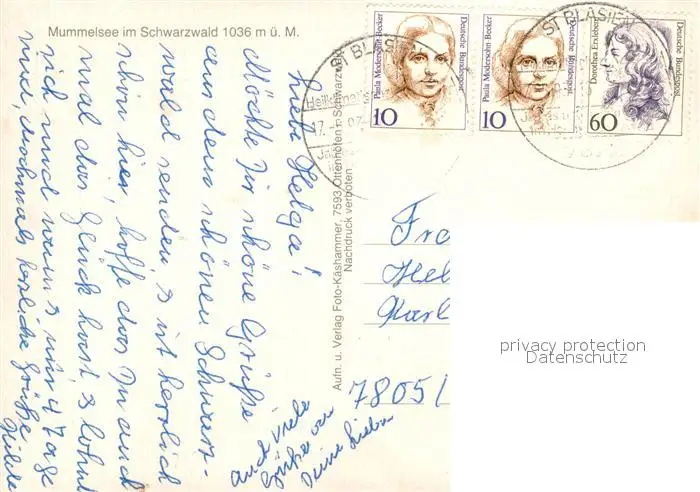 Mummelsee im Schwarzwald 1036 m ü. M.
Liebe Helga!
Möchte Dir schöne Grüße
aus dem schönen Schwarz-
wald senden, es ist herrlich
schon hier, hoffe das Du auch
mal das Glück hast, es lohnt
sich und wenn's nur 4 Tage
sind, nochmals herzliche Grüße
Hilde
auch viele
Grüße an
Deine Lieben
Aufn. u. Verlag Foto-Käshammer, 7593 Ottenhöfen i. Schwarzwald
Nachdruck verboten
ST. BLAS
17.
Paula Modersohn-Becker
Deutsche Bundespost
10
Paula Modersohn-Becker
Deutsche Bundespost
10
ST BLASIEN
Dorothea Erxleben
Deutsche Bundespost
60
Fra
Hel
Karl
78051
privacy protection
Datenschutz